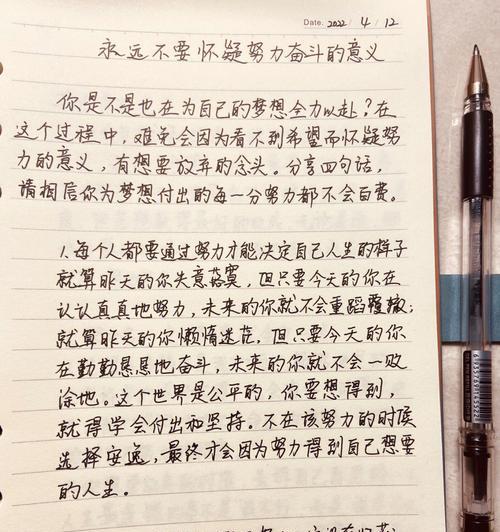 Date. 2022 / 4 / 12
永远不要怀疑努力奋斗的意义
你是不是也在为自己的梦想全力以赴？在
这个过程中，难免会因为看不到希望而怀疑努
力的意义，有想要放弃的念头。分享四句话，
请相信你为梦想付出的每一分努力都不会白费。
1.每个人都要通过努力才能决定自己人生的样子
就算昨天的你失意落寞，但只要今天的你在
认认真真地努力，未来的你就不会重蹈覆辙；
就算昨天的你懒惰迷茫，但只要今天的你
在勤勤恳恳地奋斗，未来的你就不会一败
涂地。这个世界是公平的，你要想得到，
就得学会付出和坚持。不在该努力的时候
选择安逸，最终才会因为努力得到自己想要
的人生。